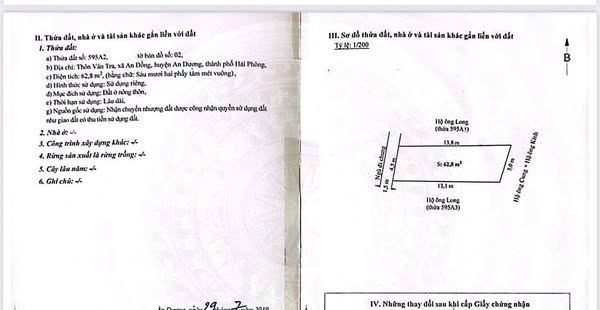 II. Thửa đất, nhà ở và tài sản khác gắn liền với đất
1. Thửa đất:
a) Thửa đất số: 595A2, tờ bản đồ số: 02,
b) Địa chỉ: Thôn Văn Tra, xã An Đồng, huyện An Dương, thành phố Hải Phòng,
c) Diện tích: 62,8 m², (bằng chữ: Sáu mươi hai phẩy tám mét vuông),
d) Hình thức sử dụng: Sử dụng riêng,
đ) Mục đích sử dụng: Đất ở nông thôn,
e) Thời hạn sử dụng: Lâu dài,
g) Nguồn gốc sử dụng: Nhận chuyển nhượng đất được công nhận quyền sử dụng đất
như giao đất có thu tiền sử dụng đất.
2. Nhà ở: -/-
3. Công trình xây dựng khác: -/-
4. Rừng sản xuất là rừng trồng: -/-
5. Cây lâu năm: -/-
6. Ghi chú: -/-
An Dương, ngày 29 tháng 7 năm 2019
III. Sơ đồ thửa đất, nhà ở và tài sản khác gắn liền với đất
Tỷ lệ: 1/200
B
Hộ ông Long
(thửa 595A1)
13,8 m
L. Ngõ đi chung
1,5 m
4,5 m
S: 62,8 m²
5,0 m
Hộ ông Cung + Hộ ông Kính
13,1 m
Hộ ông Long
(thửa 595A3)
IV. Những thay đổi sau khi cấp Giấy chứng nhận